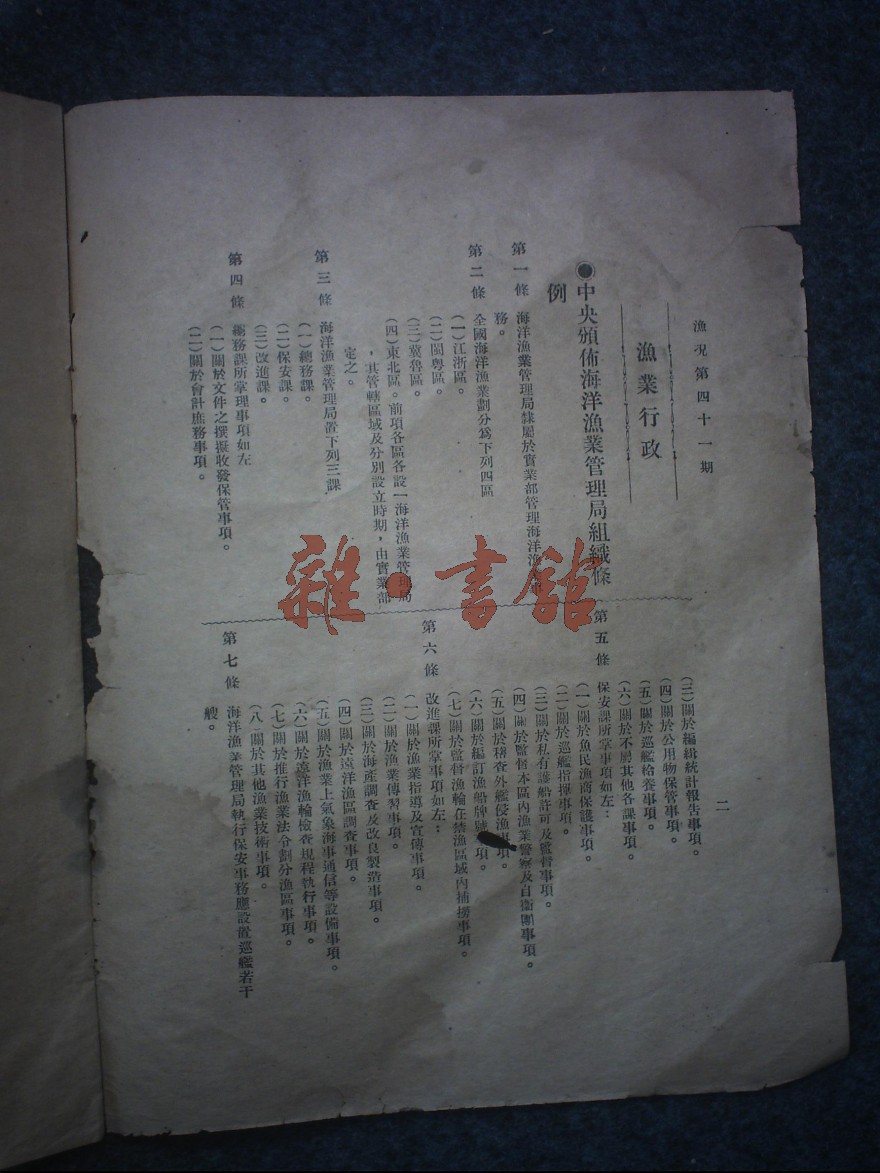 漁況第四十一期
二
漁業行政
●中央頒佈海洋漁業管理局組織條
例
第一條 海洋漁業管理局隸屬於實業部管理海洋漁業
務。
第二條 全國海洋漁業劃分爲下列四區
(一)江浙區。
(二)閩粤區。
(三)冀魯區。
(四)東北區。前項各區各設一海洋漁業管理局
，其管轄區域及分別設立時期，由實業部
定之。
第三條 海洋漁業管理局置下列三課
(一)總務課。
(二)保安課。
(三)改進課。
第四條 總務課所掌理事項如左
(一)關於文件之撰擬收發保管事項。
(二)關於會計庶務事項。
(三)關於編緝統計報告事項。
(四)關於公用物保管事項。
(五)關於巡艦給養事項。
(六)關於不屬其他各課事項。
第五條 保安課所掌事項如左：
(一)關於魚民漁商保護事項。
(二)關於巡艦指揮事項。
(三)關於私有護船許可及監督事項。
(四)關於監督本區內漁業警察及自衛團事項。
(五)關於稽查外艦侵漁事項。
(六)關於編訂漁船牌號事項。
(七)關於監督漁輪在禁漁區域內捕撈事項。
第六條 改進課所掌事項如左：
(一)關於漁業指導及宣傳事項。
(二)關於漁業傳習事項。
(三)關於海產調查及改良製造事項。
(四)關於遠洋漁區調查事項。
(五)關於漁業上氣象海事通信等設備事項。
(六)關於遠洋漁輪檢查規程執行事項。
(七)關於推行漁業法令劃分漁區事項。
(八)關於其他漁業技術事項。
第七條 海洋漁業管理局執行保安事務應設置巡艦若干
艘。
雜·書館